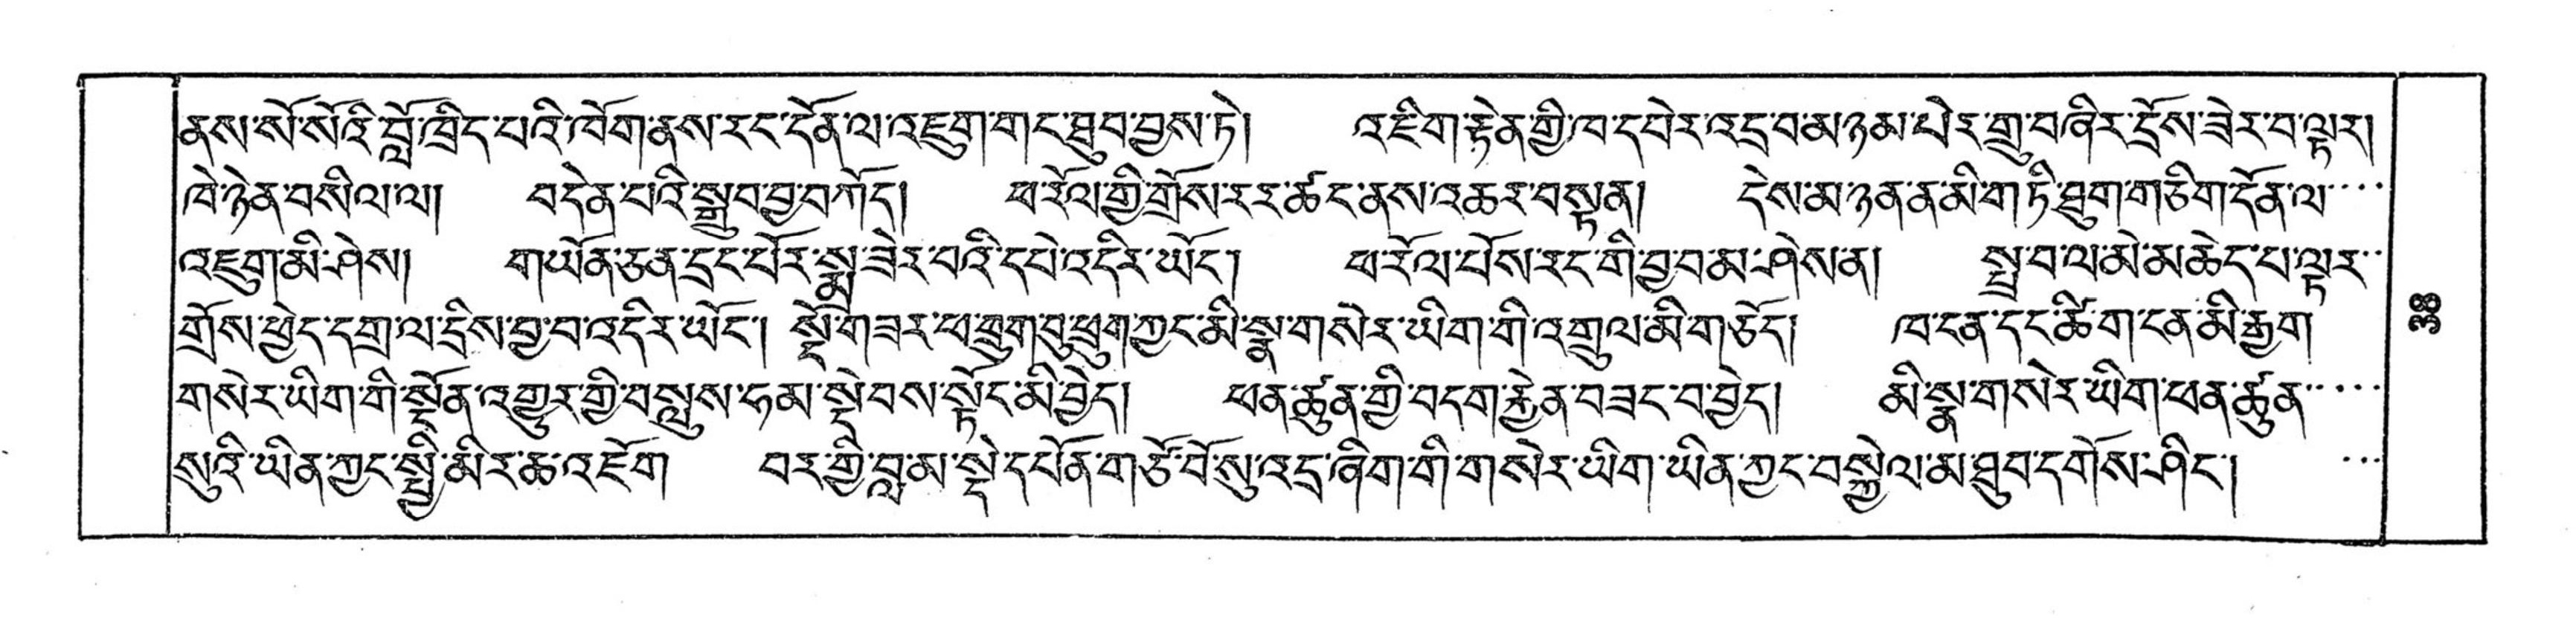 ནས་སོ་སོའི་བློ་ཁྲིད་པའི་ཁོག་ནས་རང་དོན་ལ་འཇུག་གང་ཐུབ་བྱས་ཏེ། འཇིག་རྟེན་གྱི་ཁ་དཔེར་འདྲ་བམ་ཉམ་པེར་གྲུ་བཞིར་དྲོས་ཟེར་བ་ལྟར།
ཁེ་ཉེན་བསིལ་ལ། བདེན་པའི་སྒྲུབ་བྱ་བཀོད། ཕ་རོལ་གྱི་གྲོས་རར་ཚང་ནས་འཆར་བསྟན། དེས་མ་ཉན་ན་མི་ག་ཏི་ཐུག་གཅིག་དོན་ལ
འཇུག་མི་ཤེས། གཡོན་ཅན་དྲང་པོར་སྨྲ་ཟེར་བའི་དཔེ་འདིར་ཡོང་། ཕ་རོལ་པོས་རང་གི་བྱ་བ་མ་ཤེས་ན། སྤྲ་བ་ལ་མེ་མཆེད་པ་ལྟར
གྲོས་ཕྱེད་དགྲ་ལ་དྲིས་བྱ་བ་འདིར་ཡོང་། སྡོ་གཟར་ཕ་ཕྲུག་བུ་ཕྲུག་ཀྱང་མི་སྣ་གསེར་ཡིག་གི་འགྲུལ་མི་གཅོད། ཁ་ངན་དང་ཚིག་ངན་མི་རྒྱག
གསེར་ཡིག་གི་སྔོན་འགྱུར་གྱི་བསླུས་ཧམ་སྡེབས་སྟོང་མི་བྱེད། ཕན་ཚུན་གྱི་བདག་རྐྱེན་བཟང་བ་བྱེད། མི་སྣ་གསེར་ཡིག་ཕན་ཚུན
སུའི་ཡིན་ཀྱང་སྤྱི་མིར་ཆ་འཇོག བར་གྱི་བླ་མ་སྡེ་དཔོན་གཙོ་བོ་སུ་འདྲ་ཞིག་གི་གསེར་ཡིག་ཡིན་ཀྱང་བསྐྱེལ་མ་ཐུབ་དགོས་ཤིང་།